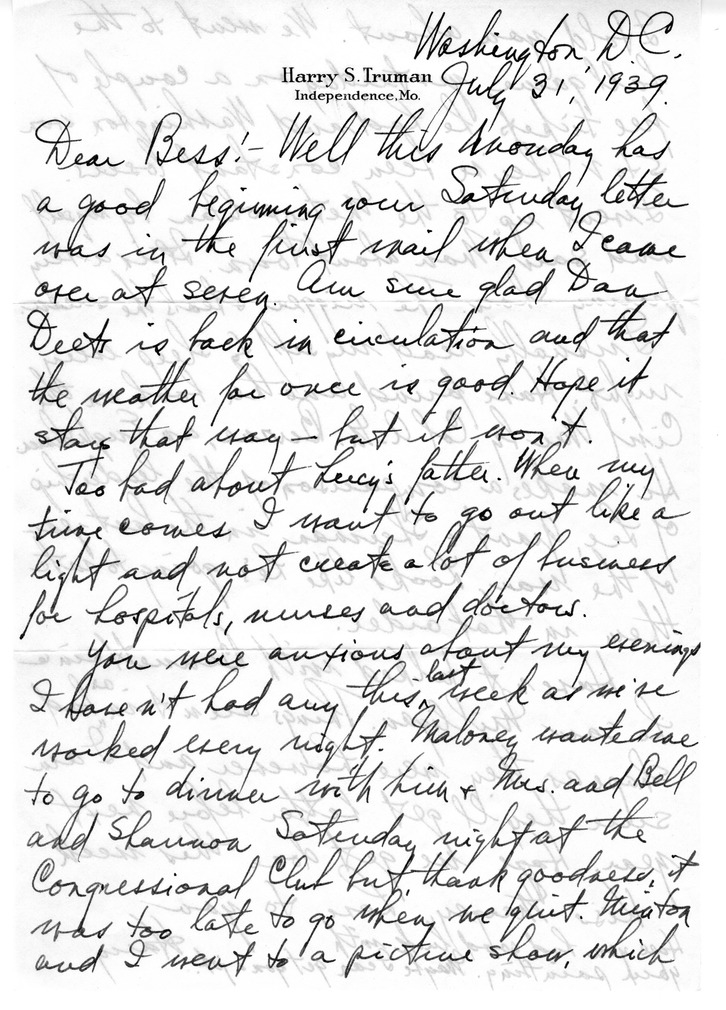 Washington D.C.
Harry S. Truman
Independence, Mo.
July 31, 1939.
Dear Bess:- Well this Monday has
a good beginning your Saturday letter
was in the first mail when I came
over at seven. Am sure glad Dan
Deets is back in circulation and that
the weather for once is good. Hope it
stays that way - but it won't.
Too bad about Lucy's father. When my
time comes I want to go out like a
light and not create a lot of business
for hospitals, nurses and doctors.
You were anxious about my evenings
I haven't had any this last week as we've
worked every night. Maloney wanted me
to go to dinner with him & Mrs. and Bell
and Shannon Saturday night at the
Congressional Club but, thank goodness, it
was too late to go when we quit. Minton
and I went to a picture show, which